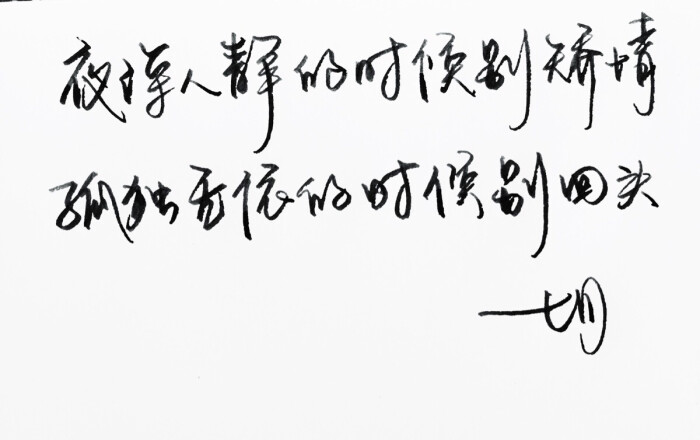 夜深人静的时候别矫情
孤独无依的时候别回头
七月